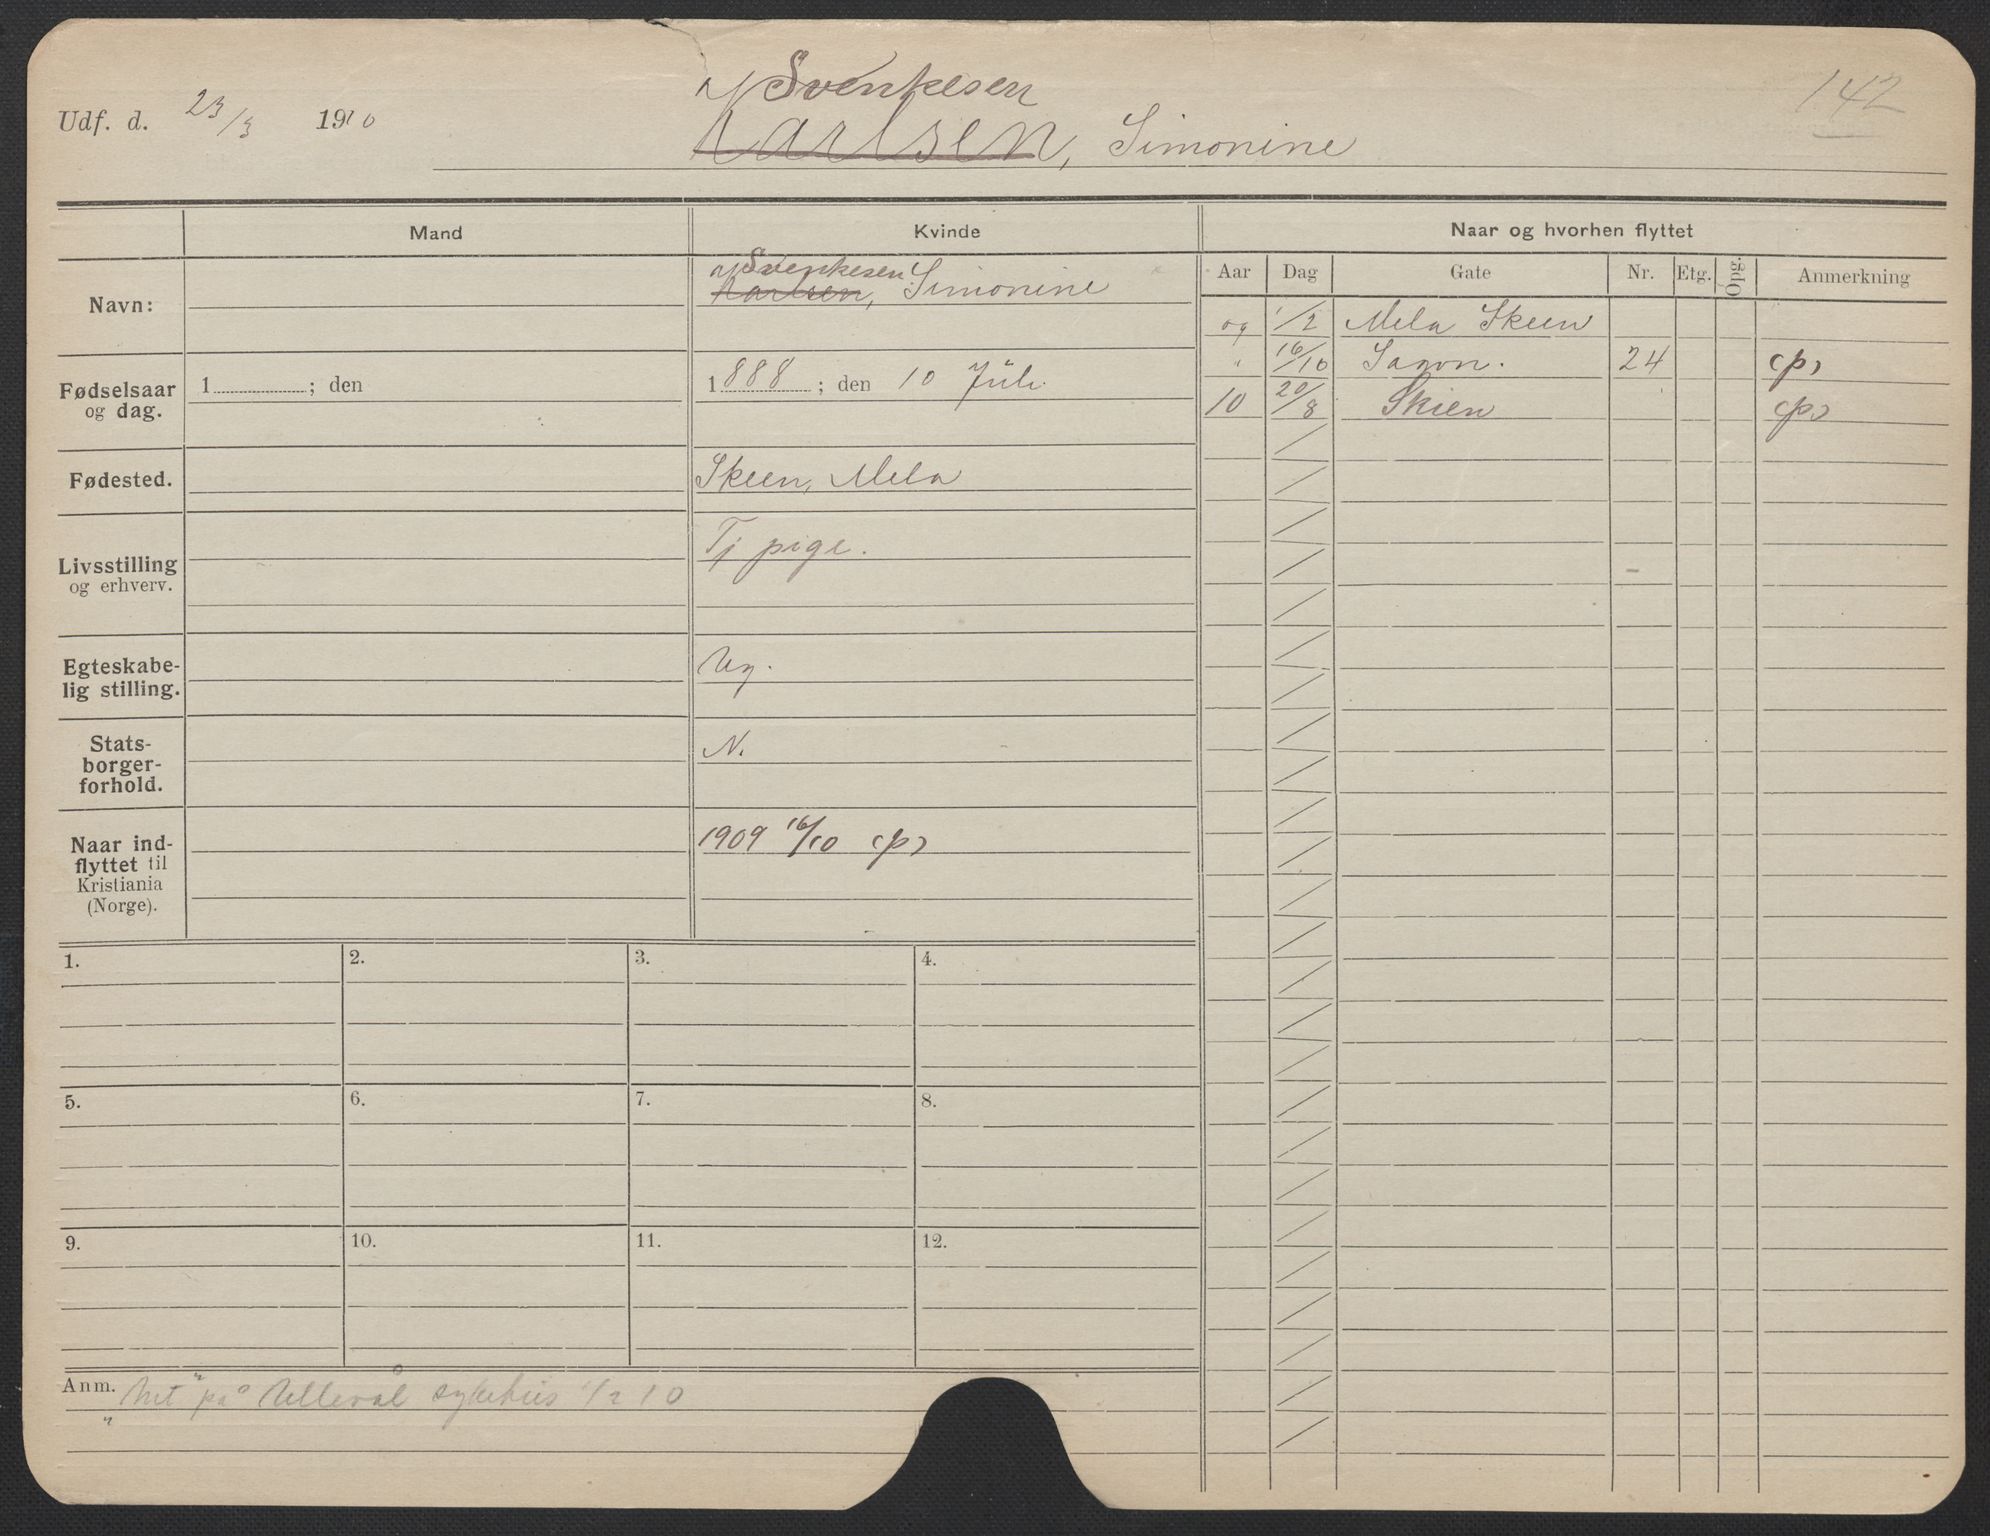 Svenkesen
Udf. d. 23/3 1910 Karlsen, Simonine 142
Mand Kvinde Naar og hvorhen flyttet
Aar Dag Gate Nr. Etg. Opg. Anmerkning
Svenkesen
Navn: Karlsen, Simonine
09 1/2 Mela Skeen
" 16/10 24 (p)
10 20/8 Skien (p)
Fødselsaar
og dag.
1 ; den 1888 ; den 10 Juli
Fødested. Skeen, Mela
Livsstilling
og erhverv.
Tj pige.
Egteskabe-
lig stilling.
Ug.
Stats-
borger-
forhold.
N.
Naar ind-
flyttet til
Kristiania
(Norge).
1909 16/10 (p)
1. 2. 3. 4.
5. 6. 7. 8.
9. 10. 11. 12.
Anm. på Ullevål sykehus 1/2 10